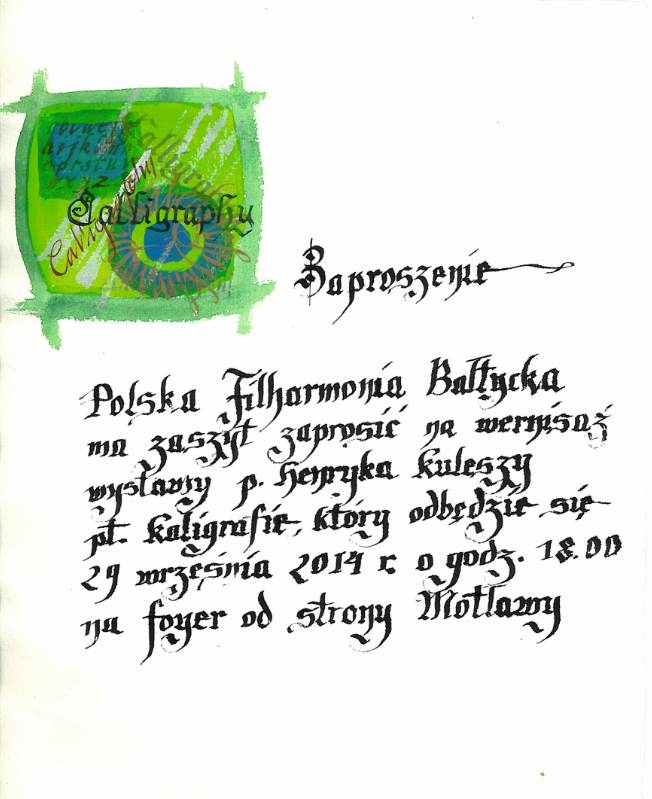 Calligraphy
Calligraphy
Calligraphy
Zaproszenie
Polska Filharmonia Bałtycka
ma zaszyt zaprosić na wernisaż
wystawy p. Henryka Kuleszy
pt. Kaligrafie, który odbędzie się
29 września 2014 r. o godz. 18.00
na foyer od strony Motławy